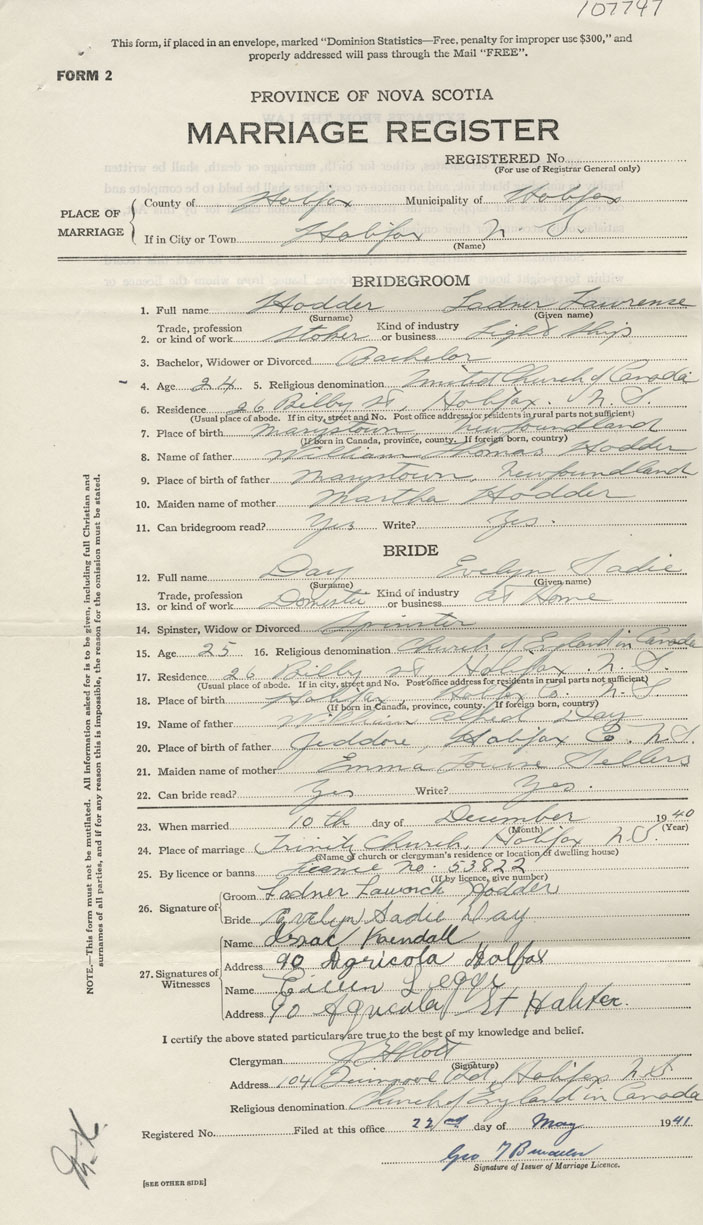 107747
This form, if placed in an envelope, marked "Dominion Statistics—Free, penalty for improper use $300," and
properly addressed will pass through the Mail "FREE".
FORM 2
PROVINCE OF NOVA SCOTIA
MARRIAGE REGISTER
REGISTERED No.
(For use of Registrar General only)
PLACE OF MARRIAGE
County of Halifax Municipality of Halifax
If in City or Town Halifax N. S.
(Name)
BRIDEGROOM
1. Full name Hodder Ladner Lawrense
(Surname) (Given name)
2. Trade, profession or kind of work Stoker Kind of industry or business Light Ship
3. Bachelor, Widower or Divorced Bachelor
4. Age 24 5. Religious denomination United Church of Canada
6. Residence 26 Bilby St, Halifax. N. S.
(Usual place of abode. If in city, street and No. Post office address for residents in rural parts not sufficient)
7. Place of birth Marystown, Newfoundland
(If born in Canada, province, county. If foreign born, country)
8. Name of father William Thomas Hodder
9. Place of birth of father Marystown, Newfoundland
10. Maiden name of mother Martha Hodder
11. Can bridegroom read? Yes Write? Yes.
BRIDE
12. Full name Day Evelyn Sadie
(Surname) (Given name)
13. Trade, profession or kind of work Domestic Kind of industry or business At Home
14. Spinster, Widow or Divorced Spinster
15. Age 25 16. Religious denomination Church of England in Canada
17. Residence 26 Bilby St, Halifax N. S.
(Usual place of abode. If in city, street and No. Post office address for residents in rural parts not sufficient)
18. Place of birth Halifax Co. N. S
(If born in Canada, province, county. If foreign born, country)
19. Name of father William Alfred Day
20. Place of birth of father Jeddore, Halifax Co. N.S.
21. Maiden name of mother Emma Louise Sellers
22. Can bride read? Yes Write? Yes.
23. When married 10th day of December 1940
(Month) (Year)
24. Place of marriage Trinity Church, Halifax N.S.
(Name of church or clergyman's residence or location of dwelling house)
25. By licence or banns Licence no. 53822
(If by licence, give number)
26. Signature of
Groom Ladner Hodder
Bride Evelyn Sadie Day
27. Signatures of Witnesses
Name Isaac
Address 90 Agricola Halfax
Name Eileen Legge
Address 90 Agricola St
I certify the above stated particulars are true to the best of my knowledge and belief.
Clergyman
(Signature)
Address 104 Halifax N.S
Religious denomination Church of England in Canada
Registered No. Filed at this office 22nd day of May 1941
Geo
Signature of Issuer of Marriage Licence.
[SEE OTHER SIDE]
NOTE.—This form must not be mutilated. All information asked for is to be given, including full Christian and
surnames of all parties, and if for any reason this is impossible, the reason for the omission must be stated.